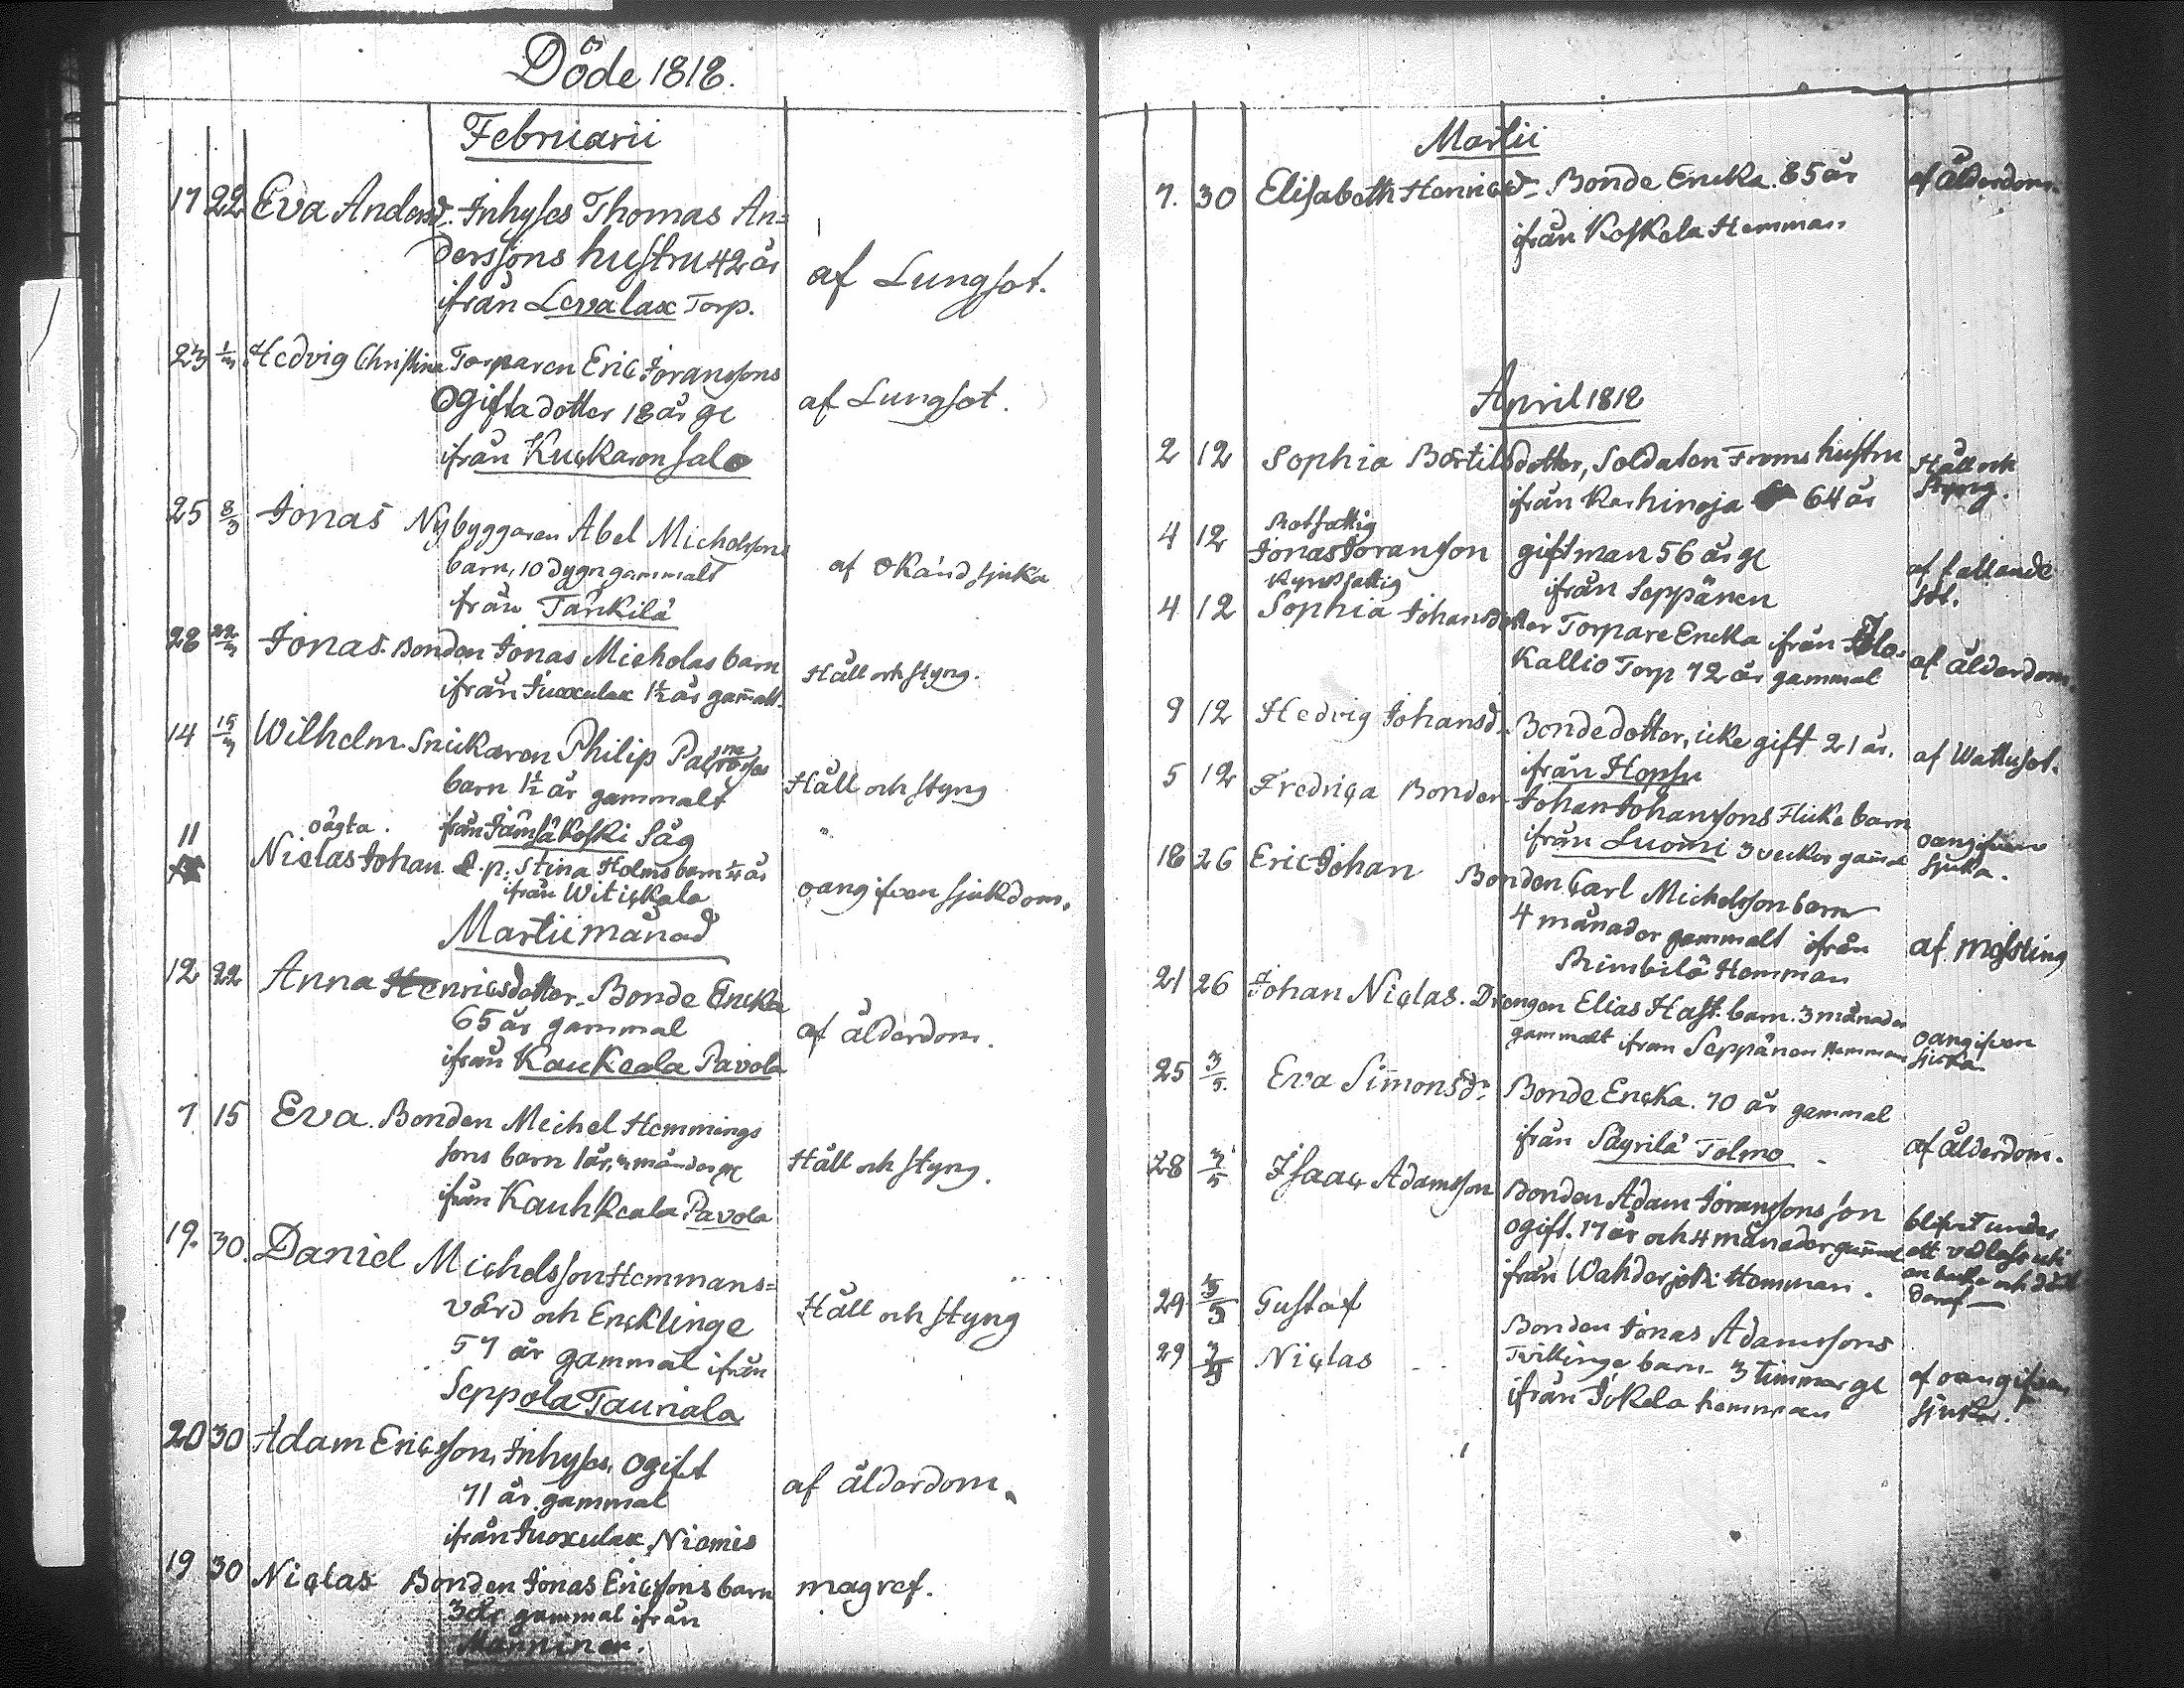 Döde 1818.
Februarii
17 22 Eva Andersd. Inhyses Thomas An=
derssons hustru 42 år
ifrån Levalax Torp.
af Lungsot.
23 1/3 Hedvig Christina Torparen Eric Joranssons
Ogifta dotter 18 år gl
ifrån Kuckaronsalo
af Lungsot.
25 8/3 Jonas Nybyggaren Abel Michelssons
barn, 10 dygn gammalt
från Tänkilä
af okänd sjuka
28 22/3 Jonas. Bonden Jonas Michelas barn
ifrån Juoxulax 1½ år gamalt.
Håll och styng.
14 15/3 Wilhelm. Snickaren Philip
barn 1½ år gammalt
från Jämsäkoski Såg
Håll och styng
11 oägta.
Niclas Johan. d. p. Stina Holms barn ¼ år
ifrån Witickala
oangifven sjukdom.
Martii månad
12 22 Anna Henricsdotter. Bonde Encka
65 år gammal
ifrån Kaukeala Pavola
af ålderdom.
7 15 Eva. Bonden Michel Hemmings
sons barn 1 år, 3 månader gl
ifrån Kauhkeala Pavola
Håll och styng.
19. 30. Daniel Michelsson Hemmans=
värd och Encklinge
57 år gammal ifrån
Seppola Tauriala
Håll och styng
20 30 Adam Ericsson, Inhyses, ogift
71 år gammal
ifrån Juoxulax Niemis
af ålderdom.
19 30 Niclas Bonden Jonas Ericssons barn
3 år gammal ifrån
Manninen.
magref.
Martii
7. 30 Elisabeth Henricsd. Bonde Encka. 85 år
ifrån Koskela Hemman
af Ålderdom.
April 1818
2 12 Sophia Bertilsdotter, Soldaten Froms hustru
ifrån Karhinoja 64 år
Håll och
Styng.
4 12 Rotfattig
Jonas Joransson gift man 56 år gl
ifrån Seppänen
af fallande
sot.
4 12 Sophia Johansdotter Torpare Encka ifrån
Kallio Torp 72 år gammal
af ålderdom.
9 12 Hedvig Johansd. Bondedotter, icke gift 21 år.
ifrån Hopsu
af Wattusot.
5 12 Fredrica Bonden Johan Johanssons Flicke barn
ifrån Luomi 3 veckor gamal
oangifven
sjuka.
18 26 Eric Johan Bonden Carl Michelsson barn
4 månader gammalt ifrån
Rimbilä Hemman
af Messling
21 26 Johan Niclas. Drengen Elias Hast. barn. 3 månader
gammalt ifran Seppänen Hemman
oangifven
sjuka.
25 3/5. Eva Simonsdr. Bonde Encka. 70 år gammal
ifrån Säyrilä Tolmo
af ålderdom.
28 3/5 Isaac Adamsson Bonden Adam Joranssons son
ogift. 17 år och 4 månader gammal
ifrån Wahderjoki Hemman.
blifvit under
ett vedlass
och död
deraf
29 3/5 Gustaf
29 3/5 Niclas
Bonden Jonas Adamssons
Tvillinge barn. 3 timmar gl
ifrån Jokela hemman
af oangifven
sjuka.